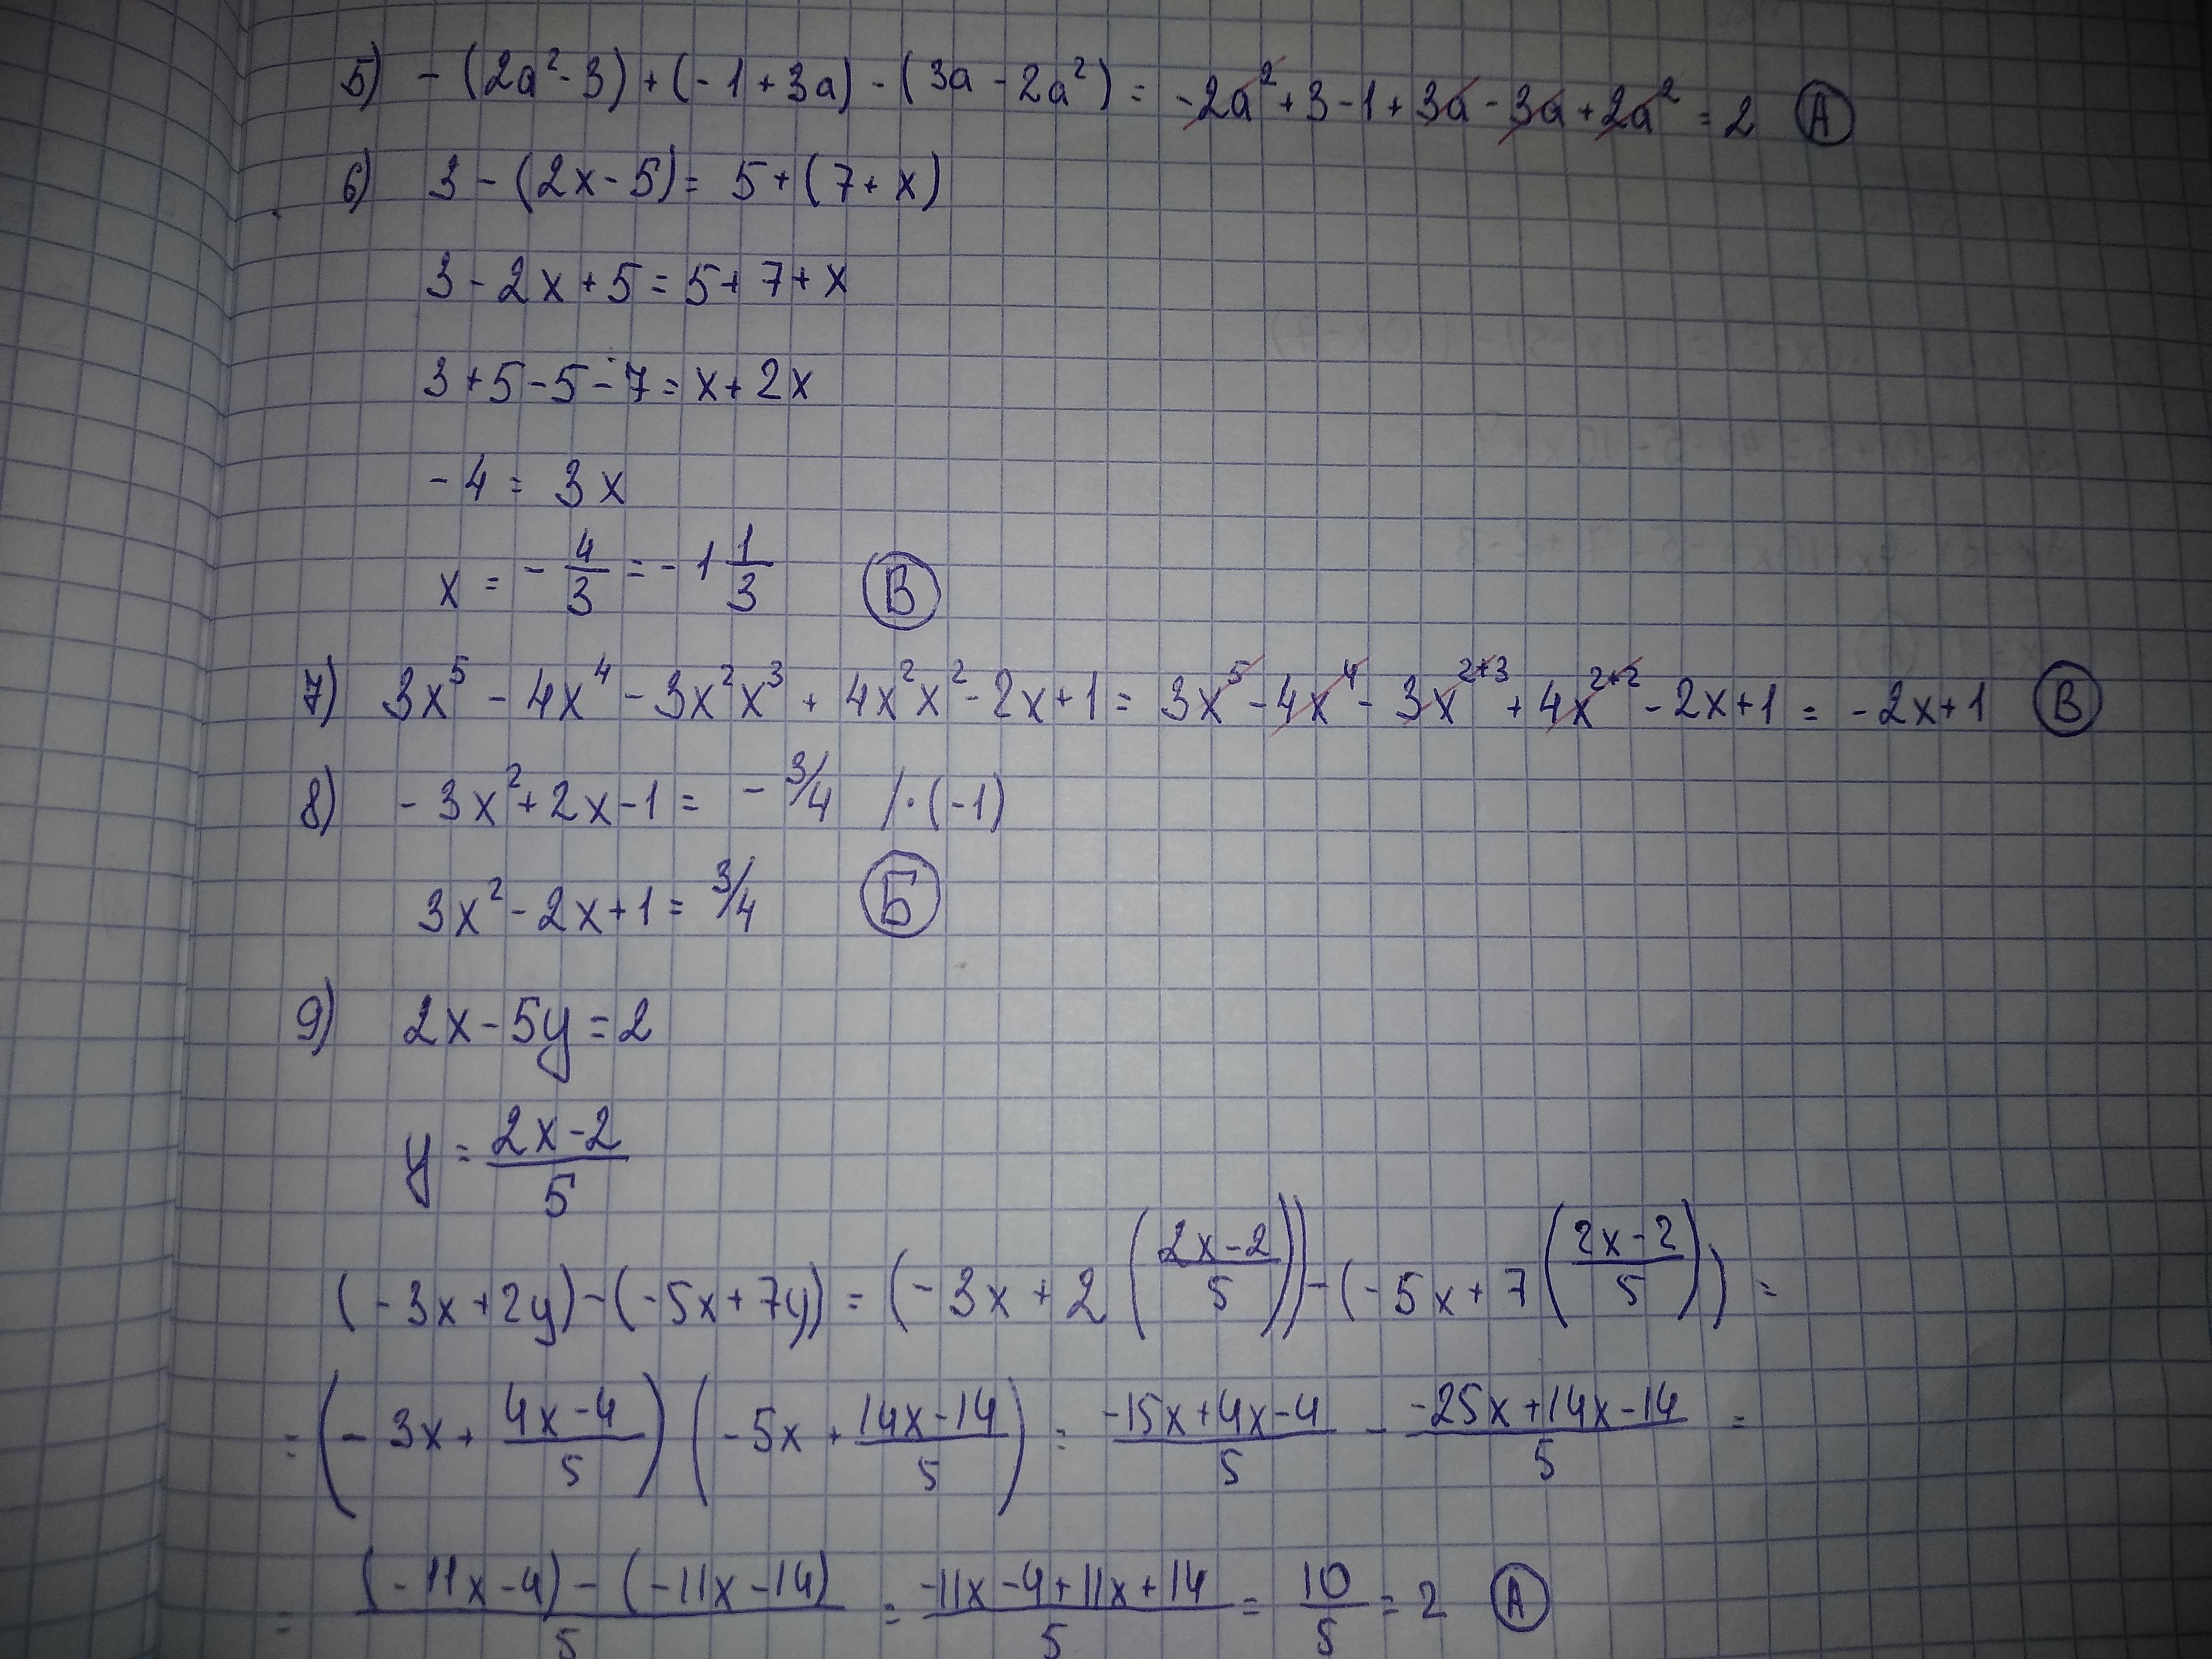 5) -(2a²-3)+(-1+3a)-(3a-2a²)= -2a²+3-1+3a-3a+2a²=2 (A)
6) 3-(2x-5)=5+(7+x)
3-2x+5=5+7+x
3+5-5-7=x+2x
-4=3x
x=-4/3=-1 1/3 (B)
7) 3x⁵-4x⁴-3x²x³+4x²x²-2x+1=3x⁵-4x⁴-3x²⁺³+4x²⁺²-2x+1=-2x+1 (B)
8) -3x²+2x-1=-3/4 /·(-1)
3x²-2x+1=3/4 (Б)
9) 2x-5y=2
y=(2x-2)/5
(-3x+2y)-(-5x+7y)=(-3x+2((2x-2)/5))-(-5x+7((2x-2)/5))=
=(-3x+(4x-4)/5)(-5x+(14x-14)/5)=(-15x+4x-4)/5-(-25x+14x-14)/5=
=((-11x-4)-(-11x-14))/5=(-11x-4+11x+14)/5=10/5=2 (A)